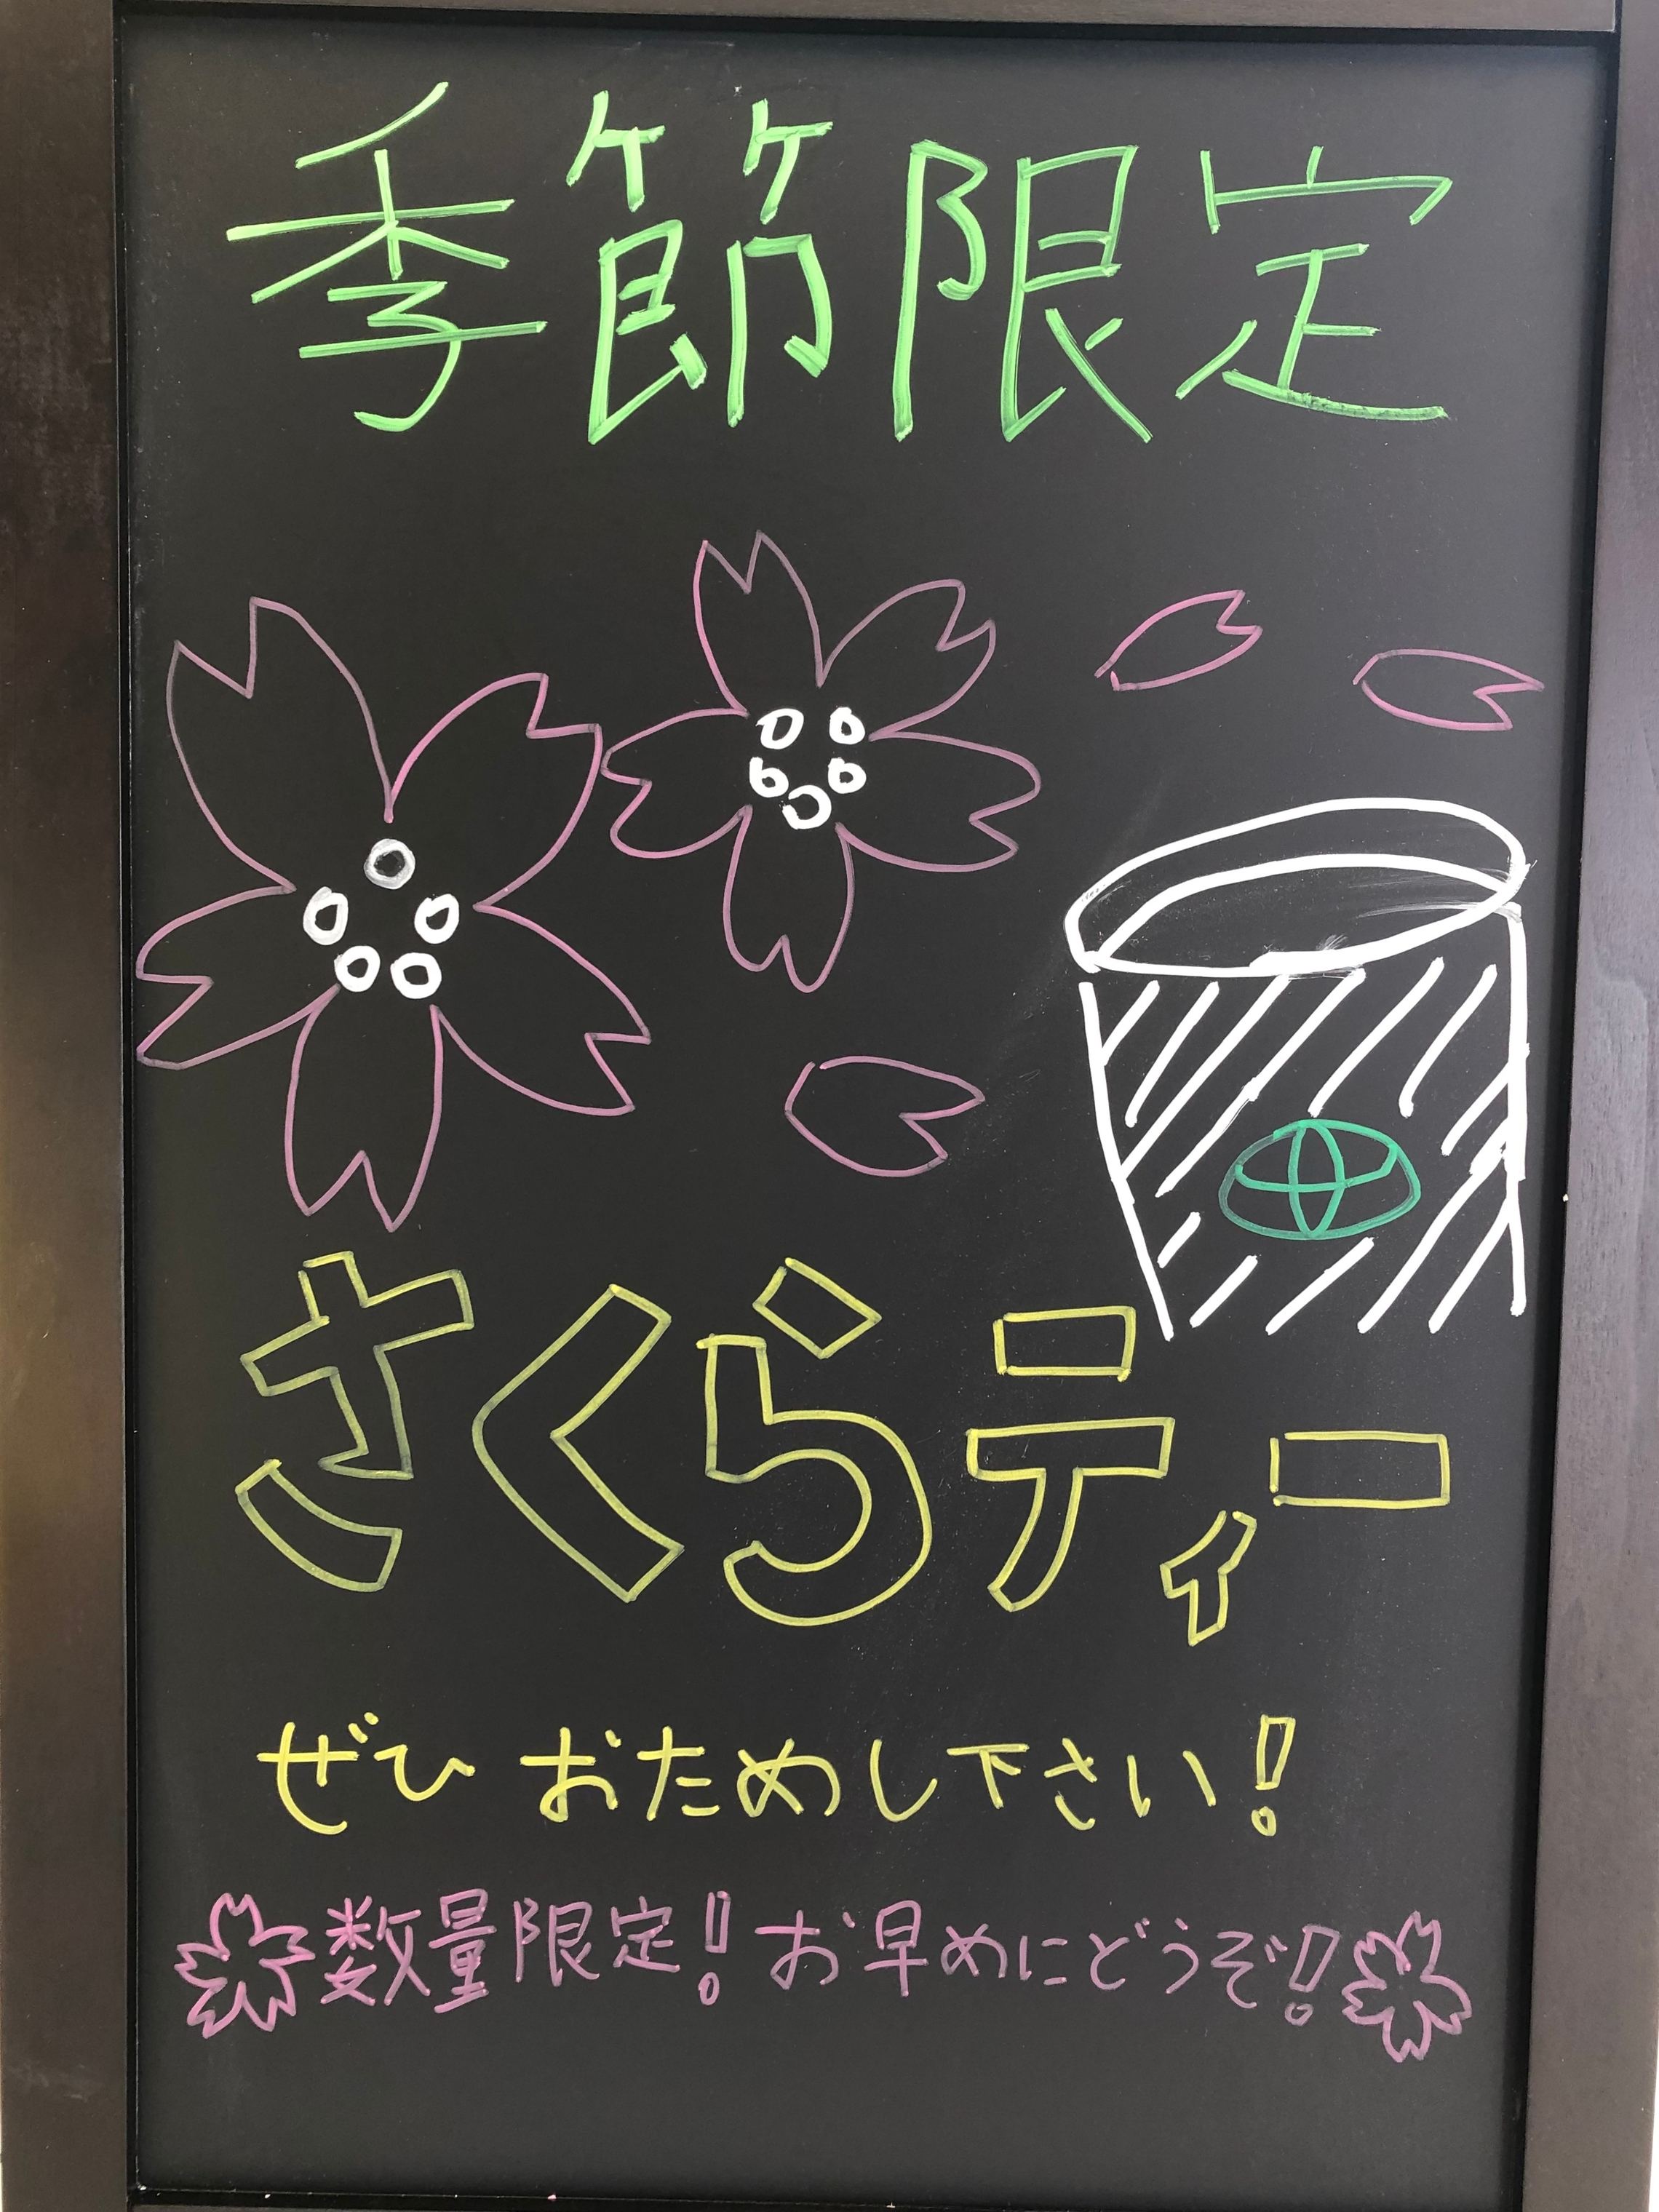 季節限定
さくらティー
ぜひ おためし下さい!
数量限定!お早めにどうぞ!